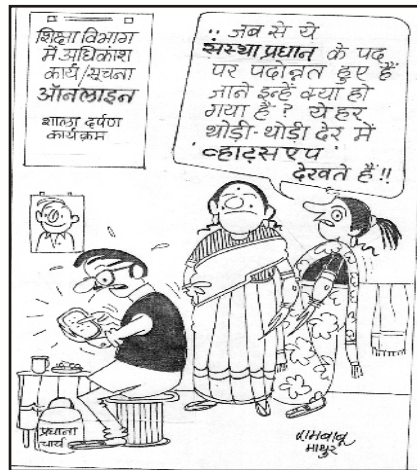 शिक्षा विभाग
में अधिकांश
कार्य/सूचना
ऑनलाइन
शाला दर्पण
कार्यक्रम
!! जब से ये
संस्था प्रधान के पद
पर पदोन्नत हुए हैं
जाने इन्हें क्या हो
गया है? ये हर
थोड़ी-थोड़ी देर में
व्हाट्सएप
देखते हैं!!
प्रधाना
चार्य
रामबाबू
माथुर